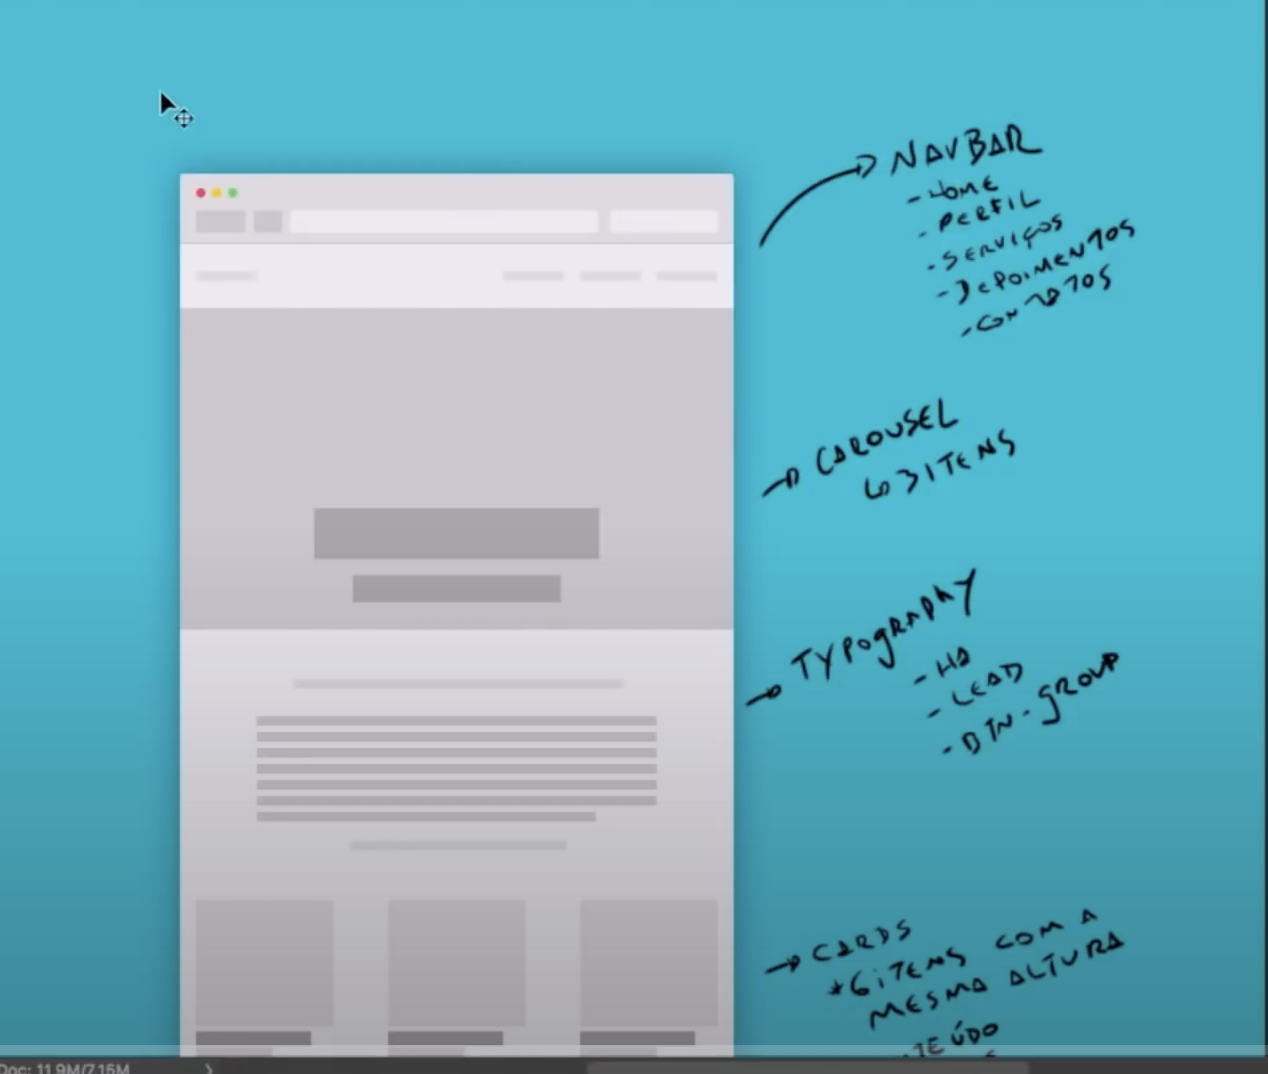 NAVBAR
- HOME
- PERFIL
- SERVIÇOS
- DEPOIMENTOS
- CONTATOS
CAROUSEL
3 ITENS
TYPOGRAPHY
- LEAD
- BTN-GROUP
CARDS
*6 ITENS COM A
MESMA ALTURA
Doc: 11,9M/7,15M